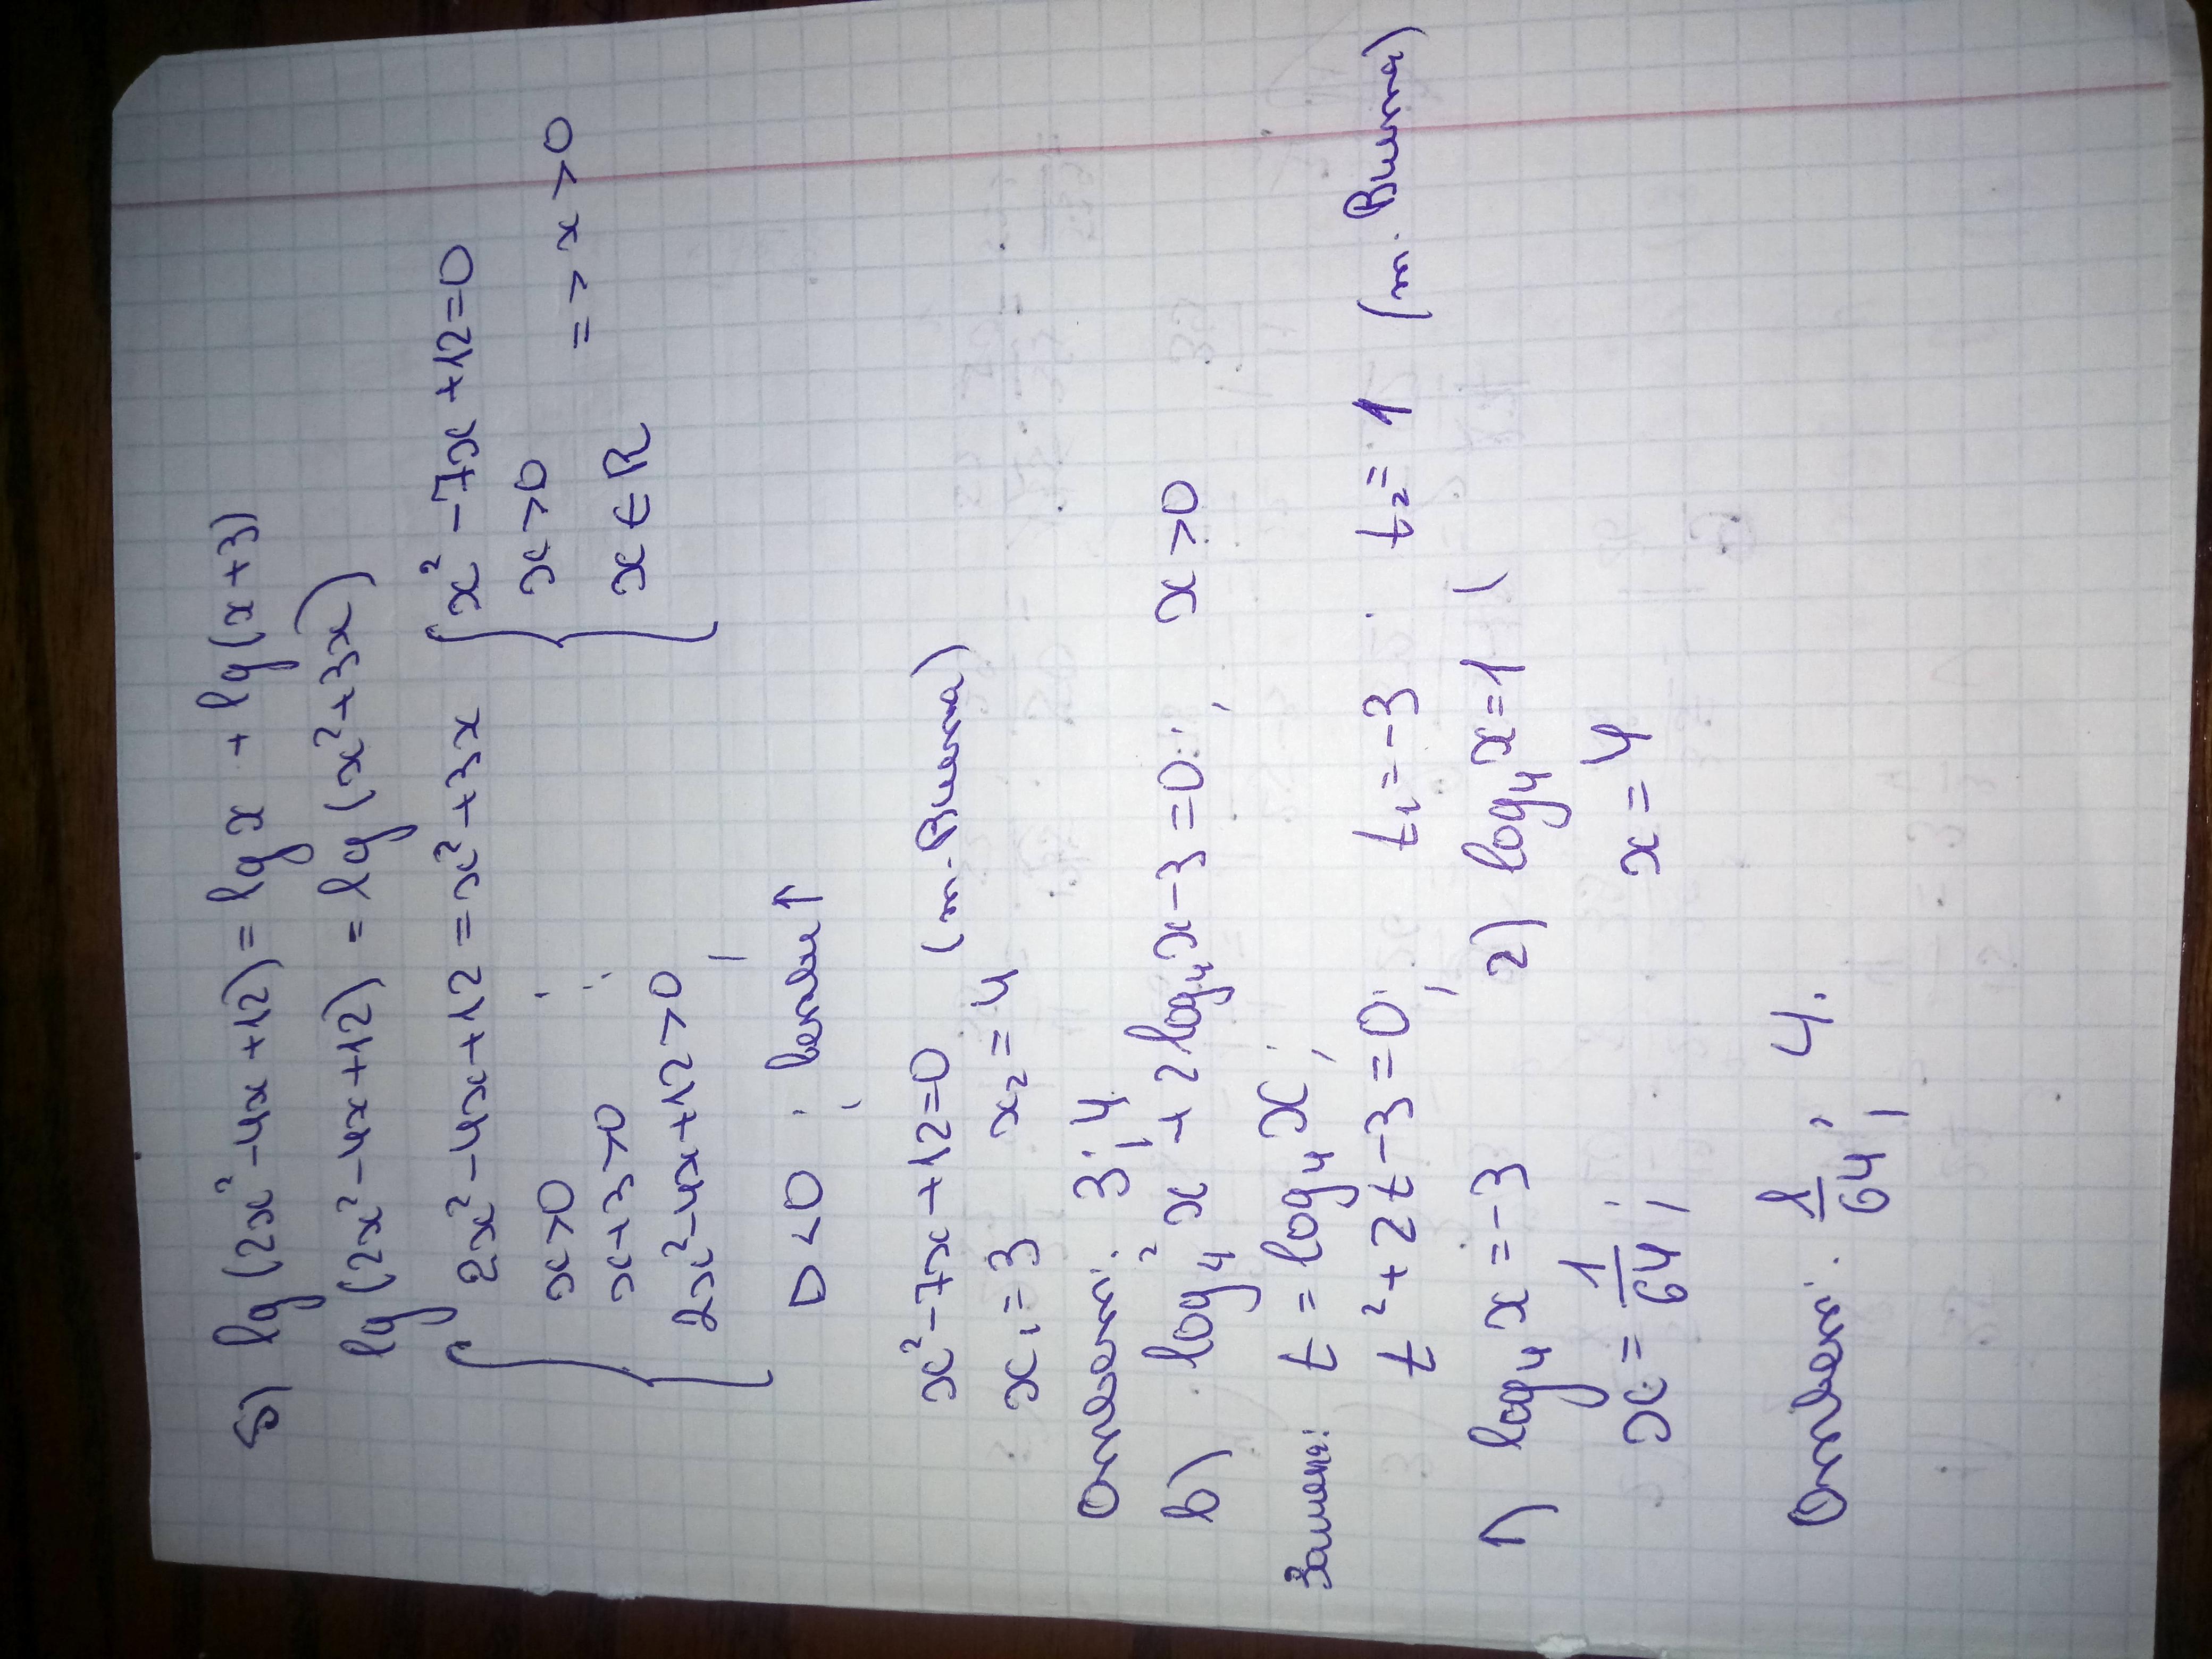 б) lg(2x²-4x+12)=lg x + lg(x+3)
lg(2x²-4x+12) = lg(x²+3x)
{ 2x²-4x+12=x²+3x { x²-7x+12=0
x>0; x>0 => x>0
x+3>0; x∈R
2x²-4x+12>0;
D<0; ветви↑
x²-7x+12=0 (т. Виета)
x₁=3 x₂=4
Ответ: 3; 4.
в) log₄²x + 2log₄x-3=0; x>0
Замена: t=log₄x;
t²+2t-3=0; t₁=-3 t₂=1 (т. Виета)
1) log₄x=-3 2) log₄x=1
x=1/64; x=4
Ответ: 1/64; 4.